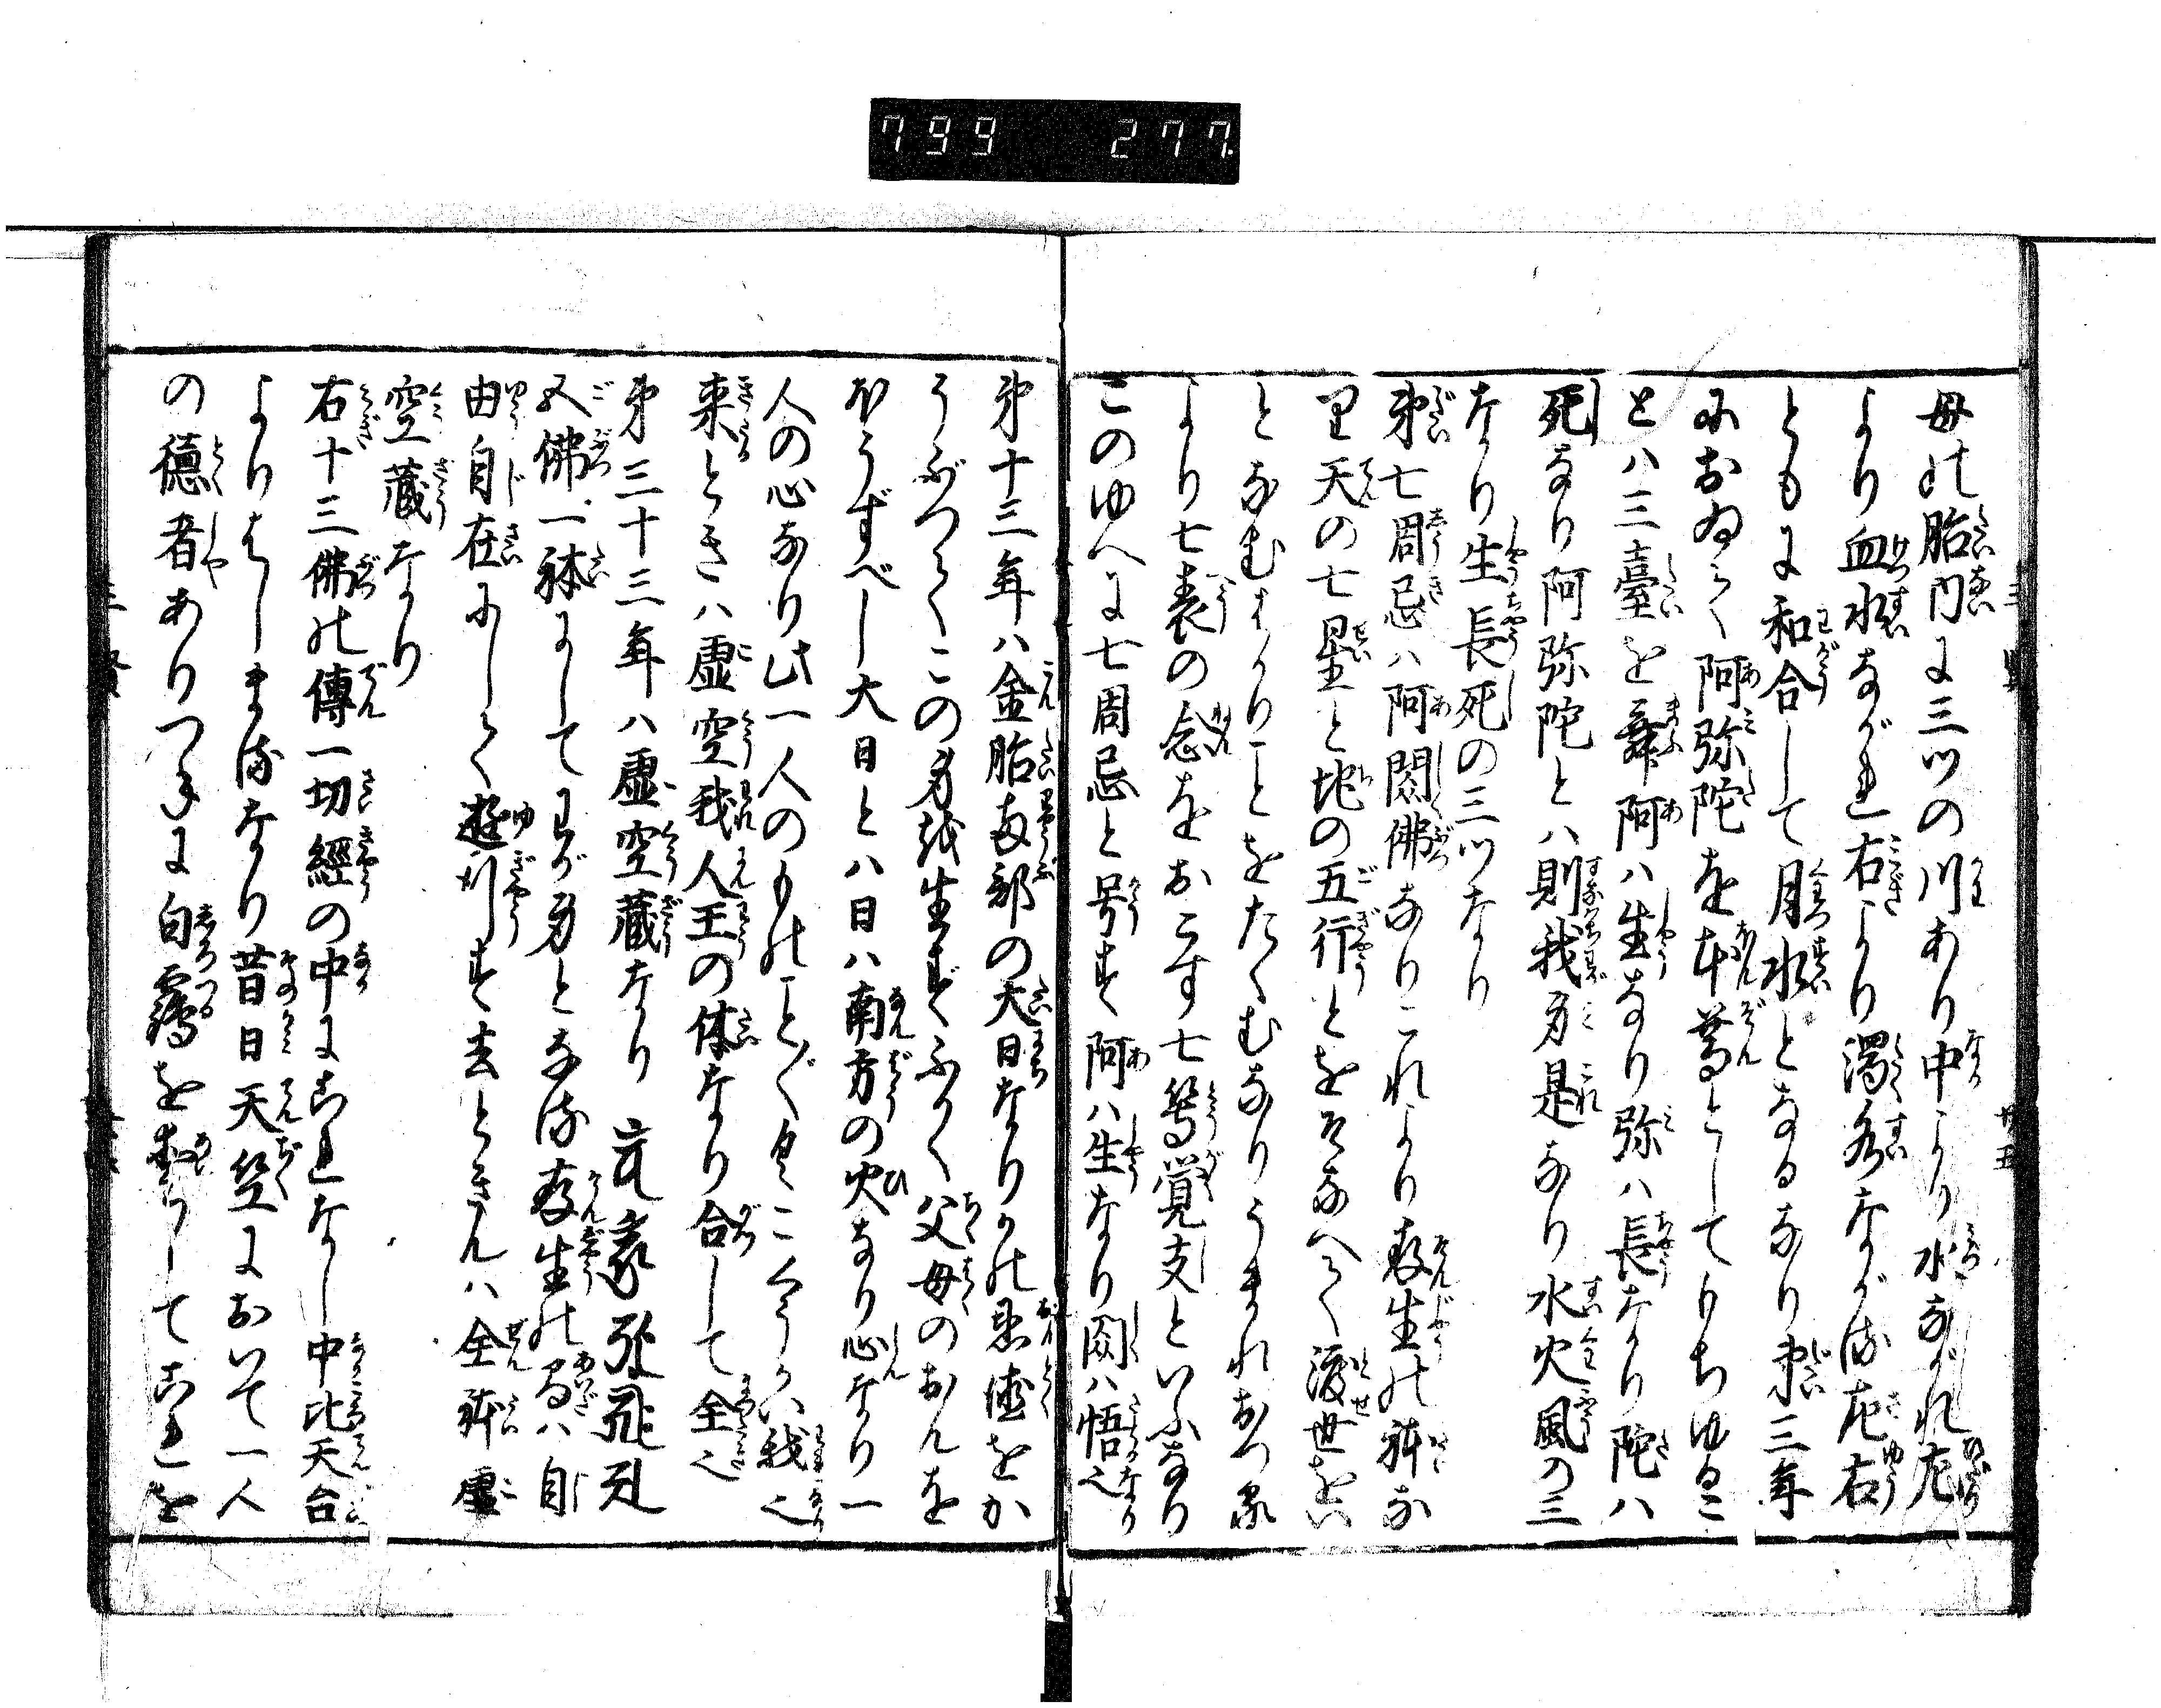 799 277
母の胎内に三ツの川あり中より水ながれ左
より血水ながれ右より濁水ながる左右
ともに和合して月水となるなり第三年
におゐて阿弥陀を本尊としてもちゆるこ
とハ三臺を舞阿ハ生なり弥ハ長なり陀ハ
死なり阿弥陀とハ則我身是なり水火風の三
なり生長死の三ツなり
第七周忌ハ阿閦佛なりこれより衆生の体な
り天の七星と地の五行とをそなへて渡世をい
となむはかりことをたくむなりうまれおつる
より七表の念をおこす七等覚支といふなり
このゆへに七周忌と号す阿ハ生なり閦ハ悟之
第十三年ハ金胎両部の大日なりその恩徳をか
うぶつてこの身を生ずふかく父母のおんを
ほうずべし大日とハ日ハ南方の火なり心なり一
人の心なり此一人のものことくこくうハ我之
来ときハ虚空我人王の体なり合して全之
第三十三年ハ虚空蔵なり
五佛一体にしてわが身となる衆生の為ハ自
由自在にして遊行す去ときんハ全体虚
空蔵なり
右十三佛の傳一切經の中にこれなし中比天台
よりはしまるなり昔日天竺において一人
の徳者ありつねに白鷺を愛してこれを